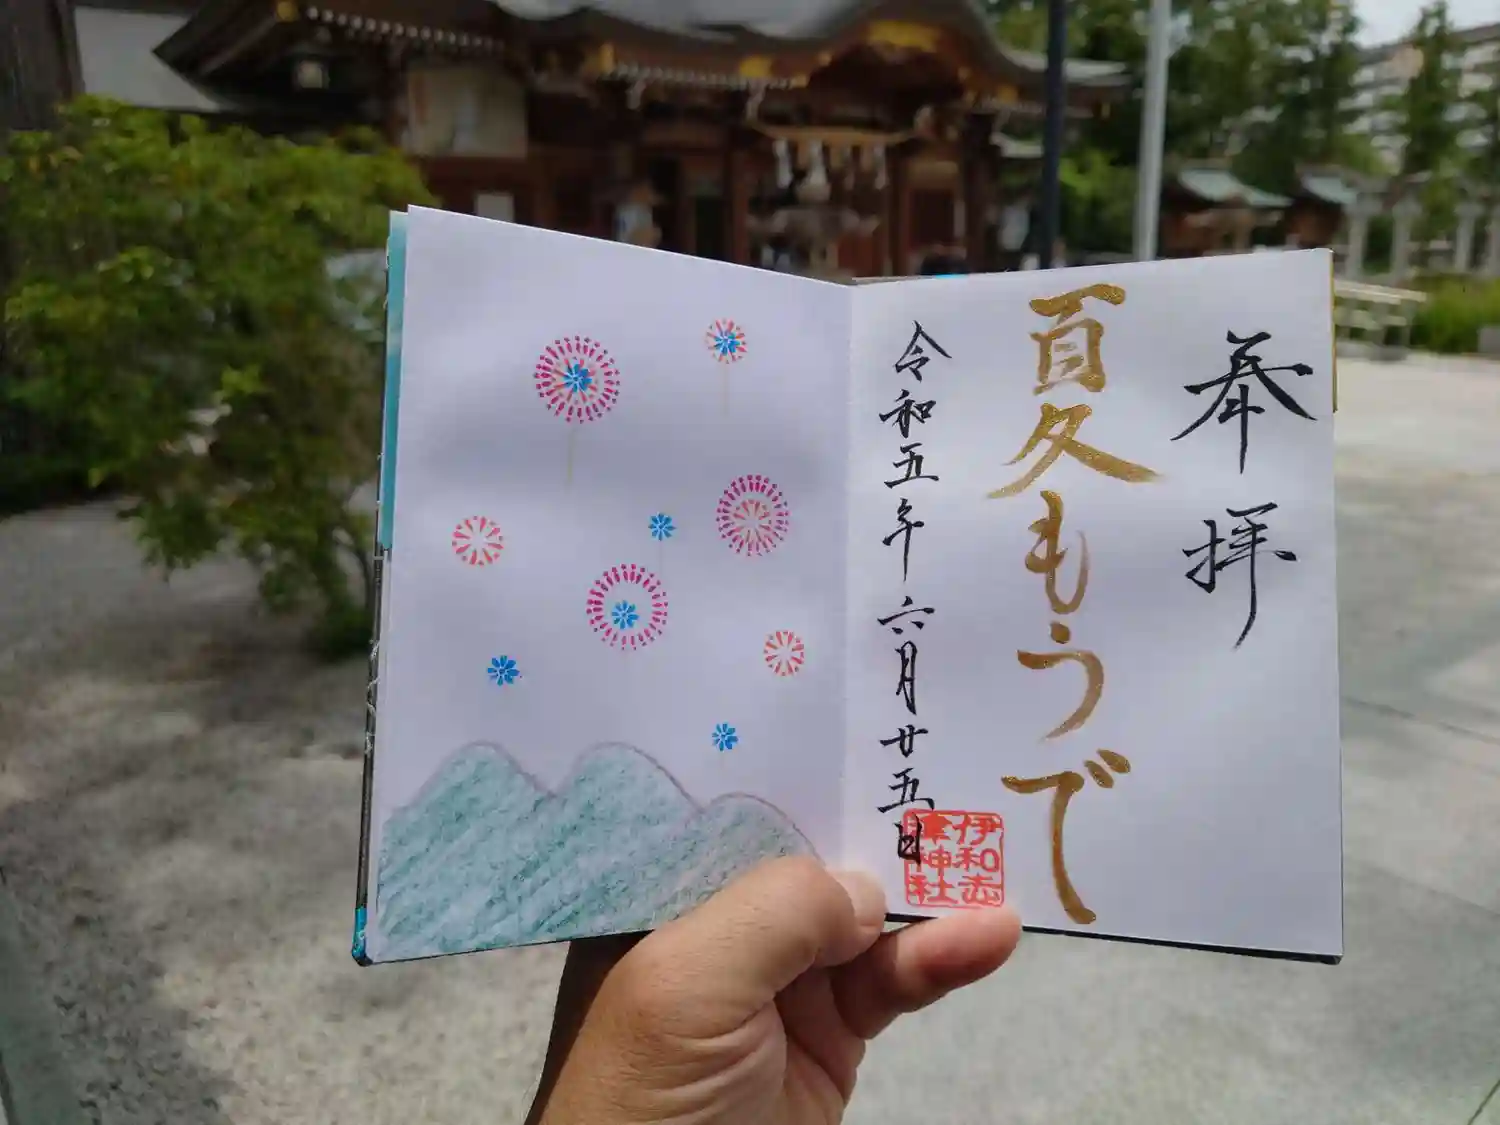 奉拝
百久もうで
令和五年六月廿五日
伊和志
津神社